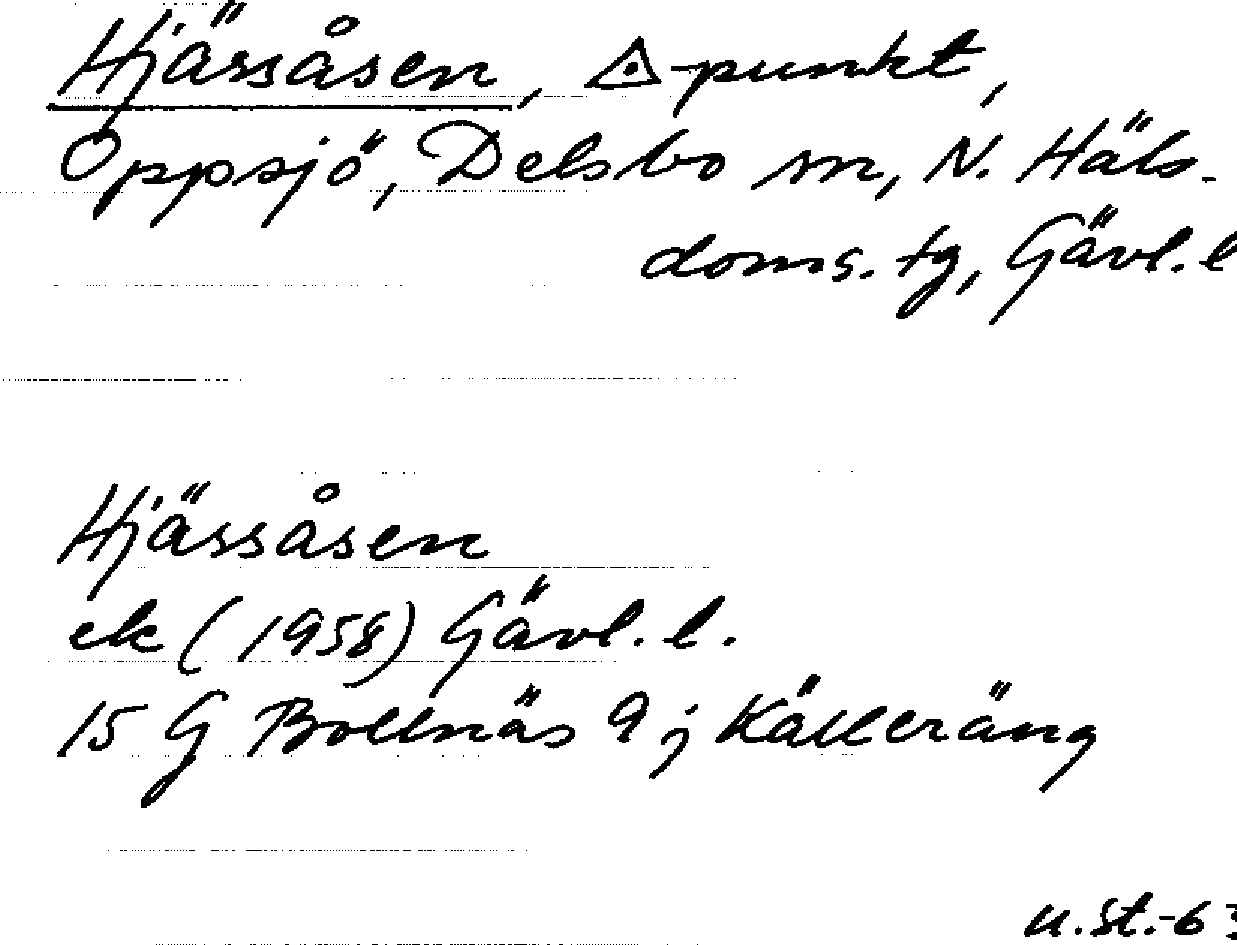 Hjässåsen, △-punkt,
Oppsjö, Delsbo sn, N. Häls.
doms. tg, Gävl. l
Hjässåsen
ek (1958) Gävl. l.
15 G Bollnäs 9 j Källeräng
u.St.-63